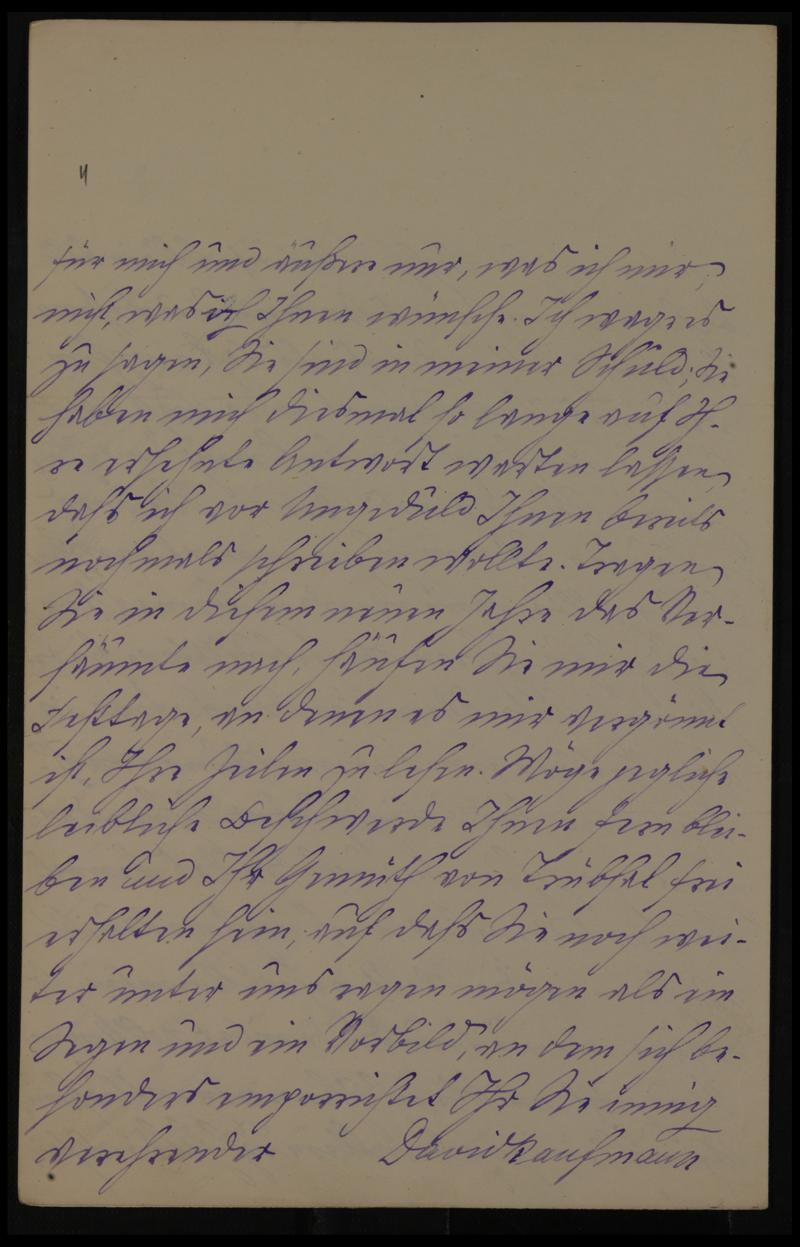 4
für mich und äußere nur, was ich mir,
nicht, was ich Ihnen wünsche. Ich wage es
zu sagen, Sie sind in meiner Schuld; Sie
haben mich diesmal so lange auf Ih-
re ersehnte Antwort warten lassen,
dass ich vor Ungeduld Ihnen bereits
nochmals schreiben wollte. Tragen
Sie in diesem neuen Jahre das Ver-
säumte nach, häufen Sie mir die
Festtage, an denen es mir vergönnt
ist, Ihre Zeilen zu lesen. Möge jegliche
leibliche Beschwerde Ihnen fern blei-
ben und Ihr Gemüth von Trübsal frei
erhalten sein, auf dass Sie noch wei-
ter unter uns ragen mögen als ein
Segen und ein Vorbild, an dem sich be-
sonders emporrichtet Ihr Sie innig
verehrender David Kaufmann